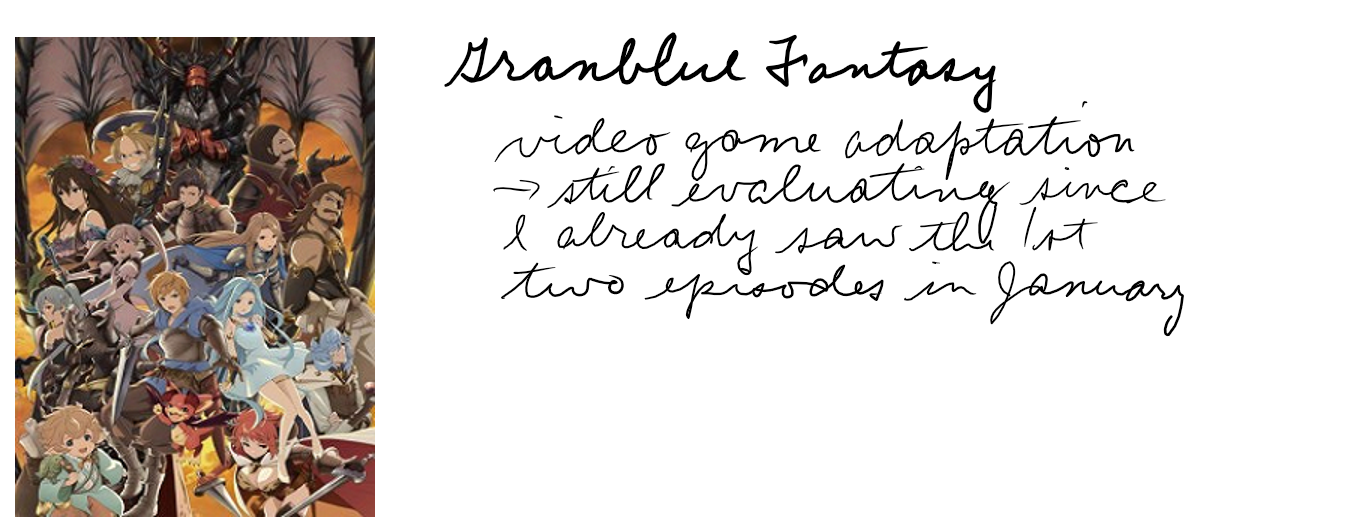 Granblue Fantasy
video game adaptation
→ still evaluating since
I already saw the 1st
two episodes in January